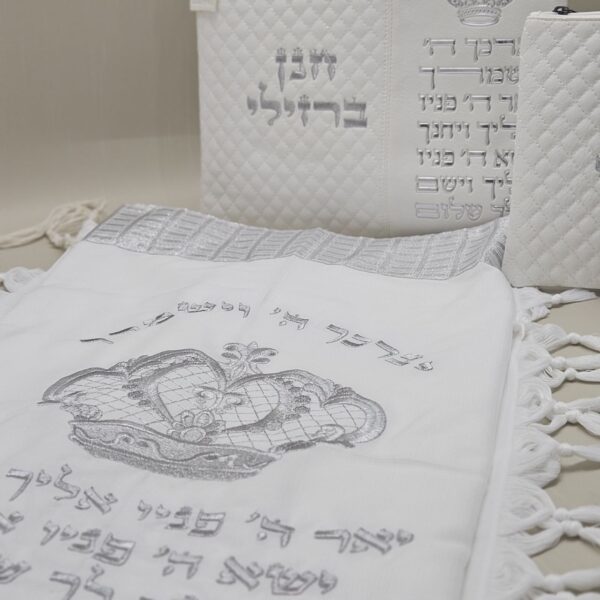 חנן
ברזילי
יברכך ה׳
וישמרך
יאר ה׳ פניו
אליך ויחנך
ישא ה׳ פניו
אליך וישם
לך שלום
יברכך ה׳ וישמרך
יאר ה׳ פניו אליך
ישא ה׳ פניו
לך